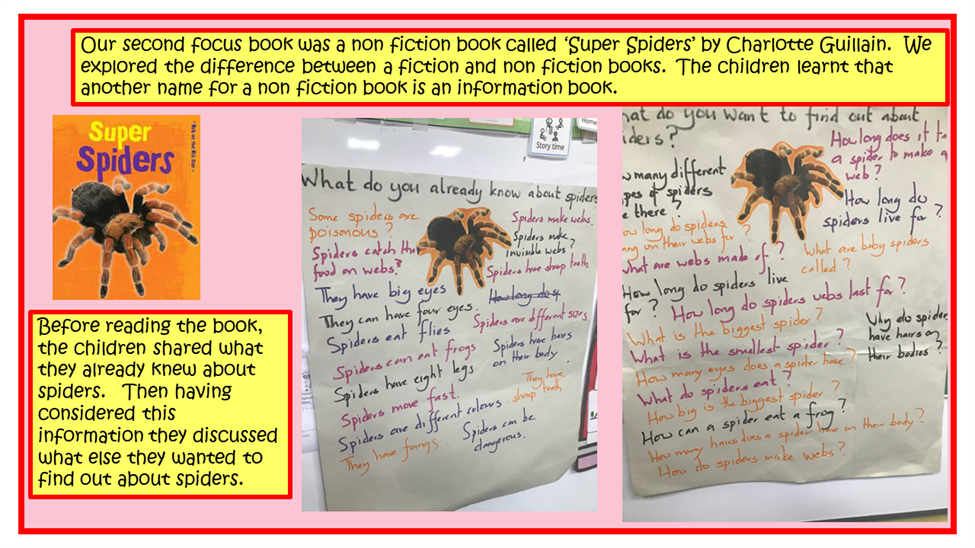 Our second focus book was a non fiction book called ‘Super Spiders’ by Charlotte Guillain. We
explored the difference between a fiction and non fiction books. The children learnt that
another name for a non fiction book is an information book.
Super
Spiders
Before reading the book,
the children shared what
they already knew about
spiders. Then having
considered this
information they discussed
what else they wanted to
find out about spiders.
Story time
Home
What do you already know about spiders
Some spiders are
poismous?
Spiders catch the
food on webs?
They have big eyes
They can have four eyes.
Spiders eat flies
Spiders can eat frogs
Spiders have eight legs
Spiders move fast.
Spiders are different colours
They have fangs
Spiders make webs.
Spiders make
invisible webs?
Spiders have sharp teeth
How long do s
Spiders are different sizes
Spiders have hairs
on their body
They have
sharp teeth
Spiders can be
dangerous.
hat do you want to find out about
iders?
w many different
pes of spiders
e there?
ow long do spiders
ng on their webs for?
what are webs made of?
How long do spiders live
for?
How long do spiders webs last for?
What is the biggest spider?
What is the smallest spider?
How many eyes does a spider have?
What do spiders eat?
How big is the biggest spider
How can a spider eat a frog?
How many hairs does a spider have on their body?
How do spiders make webs?
How long does it ta
a spider to make a
web?
How long do
spiders live for?
What are baby spiders
called?
Why do spider
have hairs on
their bodies?